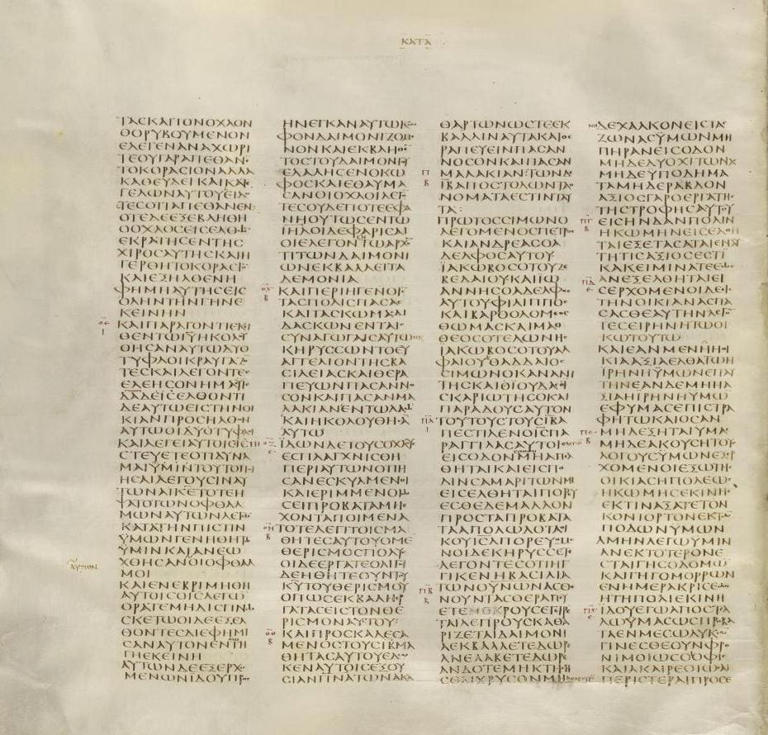 ΚΑΤΑ
ΤΑϹΚΑΙΤΟΝΟΧΛΟΝ
ΘΟΡΥΒΟΥΜΕΝΟΝ
ΕΛΕΓΕΝΑΝΑΧΩΡΙ
ΤΕΟΥΓΑΡΑΠΕΘΑΝΕ
ΤΟΚΟΡΑϹΙΟΝΑΛΛΑ
ΚΑΘΕΥΔΕΙΚΑΙΚΑΤΕ
ΓΕΛΩΝΑΥΤΟΥΕΙΔΟ
ΤΕϹΟΤΙΑΠΕΘΑΝΕΝ
ΟΤΕΔΕΕΞΕΒΛΗΘΗ
ΟΟΧΛΟϹΕΙϹΕΛΘΩ
ΕΚΡΑΤΗϹΕΝΤΗϹ
ΧΙΡΟϹΑΥΤΗϹΚΑΙΗ
ΓΕΡΘΗΤΟΚΟΡΑϹΙΟ
ΚΑΙΕΞΗΛΘΕΝΗ
ΦΗΜΗΑΥΤΗϹΕΙϹ
ΟΛΗΝΤΗΝΓΗΝΕ
ΚΕΙΝΗΝ
ΚΑΙΠΑΡΑΓΟΝΤΙΕΚΙ
ΘΕΝΤΩΙΥΗΚΟΛΟΥ
ΘΗϹΑΝΑΥΤΩΔΥΟ
ΤΥΦΛΟΙΚΡΑΥΓΑΖΟ
ΤΕϹΚΑΙΛΕΓΟΝΤΕϹ
ΕΛΕΗϹΟΝΗΜΑϹΥΙΕ
ΔΑΔΕΙϹΕΛΘΟΝΤΙ
ΔΕΑΥΤΩΕΙϹΤΗΝΟΙ
ΚΙΑΝΠΡΟϹΗΛΘΟΝ
ΑΥΤΩΟΙΔΥΟΤΥΦΛΟΙ
ΚΑΙΛΕΓΕΙΑΥΤΟΙϹΟΙϹΠΙ
ϹΤΕΥΕΤΕΟΤΙΔΥΝΑ
ΜΑΙΥΜΙΝΤΟΥΤΟΠΟΙ
ΗϹΑΙΛΕΓΟΥϹΙΝΑΥ
ΤΩΝΑΙΚΕΤΟΤΕΗ
ΨΑΤΟΤΩΝΟΦΘΑΛ
ΜΩΝΑΥΤΩΝΛΕΓΩ
ΚΑΤΑΤΗΝΠΙϹΤΙΝ
ΥΜΩΝΓΕΝΗΘΗΤΩ
ΥΜΙΝΚΑΙΑΝΕΩ
ΧΘΗϹΑΝΟΙΟΦΘΑΛ
ΜΟΙ
ΚΑΙΕΝΕΒΡΙΜΗΘΗ
ΑΥΤΟΙϹΟΙϹΛΕΓΩ
ΟΡΑΤΕΜΗΔΙϹΓΙΝΩ
ϹΚΕΤΩΟΙΔΕΕΞΕΛ
ΘΟΝΤΕϹΔΙΕΦΗΜΙ
ϹΑΝΑΥΤΟΝΕΝΤΗ
ΓΗΕΚΕΙΝΗ
ΑΥΤΩΝΔΕΕΞΕΡΧΟ
ΜΕΝΩΝΙΔΟΥΠΡΟϹ
ΗΝΕΓΚΑΝΑΥΤΩΚΩ
ΦΟΝΔΑΙΜΟΝΙΖΟΜΕ
ΝΟΝΚΑΙΕΚΒΛΗΘΕ
ΤΟϹΤΟΥΔΑΙΜΟΝΙΟΥ
ΕΛΑΛΗϹΕΝΟΚΩ
ΦΟϹΚΑΙΕΘΑΥΜΑ
ϹΑΝΟΙΟΧΛΟΙΛΕΓΟΝ
ΤΕϹΟΥΔΕΠΟΤΕΕΦΑ
ΝΗΟΥΤΩϹΕΝΤΩ
ΙΗΛΟΙΔΕΦΑΡΙϹΑΙ
ΟΙΕΛΕΓΟΝΕΝΤΩΑΡΧΟ
ΤΙΤΩΝΔΑΙΜΟΝΙ
ΩΝΕΚΒΑΛΛΕΙΤΑ
ΔΕΜΟΝΙΑ
ΚΑΙΠΕΡΙΗΓΕΝΟΙϹ
ΤΑϹΠΟΛΙϹΠΑϹΑϹ
ΚΑΙΤΑϹΚΩΜΑϹΔΙ
ΔΑϹΚΩΝΕΝΤΑΙϹ
ϹΥΝΑΓΩΓΑΙϹΑΥΤΩΝ
ΚΗΡΥϹϹΩΝΤΟΕΥ
ΑΓΓΕΛΙΟΝΤΗϹΒΑ
ϹΙΛΕΙΑϹΚΑΙΘΕΡΑ
ΠΕΥΩΝΠΑϹΑΝΝΟ
ϹΟΝΚΑΙΠΑϹΑΝΜΑ
ΛΑΚΙΑΝΕΝΤΩΛΑΩ
ΚΑΙΗΚΟΛΟΥΘΗϹΑ
ΑΥΤΩ
ΙΔΩΝΔΕΤΟΥϹΟΧΛΟΥϹ
ΕϹΠΛΑΓΧΝΙϹΘΗ
ΠΕΡΙΑΥΤΩΝΟΤΙΗ
ϹΑΝΕϹΚΥΛΜΕΝΟΙ
ΚΑΙΕΡΙΜΜΕΝΟΙΩ
ϹΕΙΠΡΟΒΑΤΑΜΗΕ
ΧΟΝΤΑΠΟΙΜΕΝΑ
ΤΟΤΕΛΕΓΙΤΟΙϹΜΑ
ΘΗΤΕϹΑΥΤΟΥΟΜΕ
ΘΕΡΙϹΜΟϹΠΟΛΥϹ
ΟΙΔΕΕΡΓΑΤΕΟΛΙΓΟΙ
ΔΕΗΘΗΤΕΟΥΝΤΟΥ
ΚΥΤΟΥΘΕΡΙϹΜΟΥ
ΟΠΩϹΕΚΒΑΛΗΕΡ
ΓΑΤΑϹΕΙϹΤΟΝΘΕ
ΡΙϹΜΟΝΑΥΤΟΥ
ΚΑΙΠΡΟϹΚΑΛΕϹΑ
ΜΕΝΟϹΤΟΥϹΙΒΜΑ
ΘΗΤΑϹΑΥΤΟΥΕΔΩ
ΚΕΝΑΥΤΟΙϹΕΞΟΥ
ϹΙΑΝΠΝΑΤΩΝΑΚΑ
ΘΑΡΤΩΝΩϹΤΕΕΚ
ΒΑΛΛΙΝΑΥΤΑΚΑΙΘΕ
ΡΑΠΕΥΕΙΝΠΑϹΑΝ
ΝΟϹΟΝΚΑΙΠΑϹΑΝ
ΜΑΛΑΚΙΑΝΤΩΝΔΕ
ΙΒΑΠΟϹΤΟΛΩΝΤΑΟ
ΝΟΜΑΤΑΕϹΤΙΝΤΑΥ
ΤΑ
ΠΡΩΤΟϹϹΙΜΩΝΟ
ΛΕΓΟΜΕΝΟϹΠΕΤΡΟϹ
ΚΑΙΑΝΔΡΕΑϹΟΑ
ΔΕΛΦΟϹΑΥΤΟΥ
ΙΑΚΩΒΟϹΟΤΟΥΖΕ
ΒΕΔΑΙΟΥΚΑΙΙΩ
ΑΝΝΗϹΟΑΔΕΛΦΟϹ
ΑΥΤΟΥΦΙΛΙΠΠΟϹ
ΚΑΙΒΑΡΘΟΛΟΜΕΟϹ
ΘΩΜΑϹΚΑΙΜΑΘ
ΘΕΟϹΟΤΕΛΩΝΗϹ
ΙΑΚΩΒΟϹΟΤΟΥΑΛ
ΦΑΙΟΥΘΑΔΔΑΙΟϹ
ϹΙΜΩΝΟΚΑΝΑΝΙ
ΤΗϹΚΑΙΟΙΟΥΔΑϹΟΙ
ϹΚΑΡΙΩΤΗϹΟΚΑΙ
ΠΑΡΑΔΟΥϹΑΥΤΟΝ
ΤΟΥΤΟΥϹΤΟΥϹΙΒΑ
ΠΕϹΤΙΛΕΝΟΙϹΠΑ
ΡΑΓΓΙΛΑϹΑΥΤΟΙϹ
ΕΙϹΟΔΟΝΕΘΝΩΝΜΗΑΠΕΛ
ΘΗΤΑΙΚΑΙΕΙϹΠΟ
ΛΙΝϹΑΜΑΡΙΤΩΝΜΗ
ΕΙϹΕΛΘΗΤΑΙΠΟΡΕΥ
ΕϹΘΕΔΕΜΑΛΛΟΝ
ΠΡΟϹΤΑΠΡΟΒΑΤΑ
ΤΑΑΠΟΛΩΛΟΤΑΟΙ
ΚΟΥΙϹΛΠΟΡΕΥΟΜΕ
ΝΟΙΔΕΚΗΡΥϹϹΕΤΕ
ΛΕΓΟΝΤΕϹΟΤΙΗΓ
ΓΙΚΕΝΗΒΑϹΙΛΙΑ
ΤΩΝΟΥΝΩΝΑϹΘΕ
ΝΟΥΝΤΑϹΘΕΡΑΠΕΥ
ΕΤΕΝΕΚΡΟΥϹΕΓΙΡΕ
ΤΑΙΛΕΠΡΟΥϹΚΑΘΑ
ΡΙΖΕΤΑΙΔΑΙΜΟΝΙ
ΑΕΚΒΑΛΛΕΤΕΔΩΡΕ
ΑΝΕΛΑΒΕΤΕΔΩΡΕ
ΑΝΔΟΤΕΜΗΚΤΗϹΗ
ϹΘΕΧΡΥϹΟΝΜΗ
ΔΕΧΑΛΚΟΝΕΙϹΤΑϹ
ΖΩΝΑϹΥΜΩΝΜΗ
ΠΗΡΑΝΕΙϹΟΔΟΝ
ΜΗΔΕΔΥΟΧΙΤΩΝΑϹ
ΜΗΔΕΥΠΟΔΗΜΑ
ΤΑΜΗΔΕΡΑΒΔΟΝ
ΑΞΙΟϹΓΑΡΟΕΡΓΑΤΗϹ
ΤΗϹΤΡΟΦΗϹΑΥΤΟΥ
ΕΙϹΗΝΔΑΝΠΟΛΙΝ
ΗΚΩΜΗΝΕΙϹΕΛΘΗ
ΤΑΙΕΞΕΤΑϹΑΤΑΙΕΝΑΥ
ΤΗΤΙϹΑΞΙΟϹΕϹΤΙ
ΚΑΚΕΙΜΙΝΑΤΕΕΩϹ
ΑΝΕΞΕΛΘΗΤΑΙΕΙ
ϹΕΡΧΟΜΕΝΟΙΔΕΙϹ
ΤΗΝΟΙΚΙΑΝΑϹΠΑ
ϹΑϹΘΕΑΥΤΗΝΛΕΓΟ
ΤΕϹΕΙΡΗΝΗΤΩΟΙ
ΚΩΤΟΥΤΩ
ΚΑΙΕΑΝΜΕΝΗΗΟΙ
ΚΙΑΑΞΙΑΕΛΘΑΤΩΗ
ΙΡΗΝΗΥΜΩΝΕΠΑΥ
ΤΗΝΕΑΝΔΕΜΗΗΑ
ΞΙΑΗΙΡΗΝΗΥΜΩ
ΕΦΥΜΑϹΕΠΙϹΤΡΑ
ΦΗΤΩΚΑΙΟϹΑΝ
ΜΗΔΕΞΗΤΑΙΥΜΑϹ
ΜΗΔΕΑΚΟΥϹΗΤΟΥϹ
ΛΟΓΟΥϹΥΜΩΝΕΞΕΡ
ΧΟΜΕΝΟΙΕΞΩΤΗϹ
ΟΙΚΙΑϹΗΠΟΛΕΩϹ
ΗΚΩΜΗϹΕΚΙΝΗϹ
ΕΚΤΙΝΑΞΑΤΕΤΟΝ
ΚΟΝΙΟΡΤΟΝΕΚΤΩ
ΠΟΔΩΝΥΜΩΝ
ΑΜΗΝΛΕΓΩΥΜΙΝ
ΑΝΕΚΤΟΤΕΡΟΝΕ
ϹΤΑΙΓΗϹΟΔΟΜΩ
ΚΑΙΓΗΓΟΜΟΡΡΩΝ
ΕΝΗΜΕΡΑΚΡΙϹΕΩϹ
ΗΤΗΠΟΛΙΕΚΙΝΗ
ΙΔΟΥΕΓΩΑΠΟϹΤΕΛ
ΛΩΥΜΑϹΩϹΠΡΟΒΑ
ΤΑΕΝΜΕϹΩΛΥΚΩΝ
ΓΙΝΕϹΘΕΟΥΝΦΡΟ
ΝΙΜΟΙΩϹΟΟΦΙϹ
ΚΑΙΑΚΑΙΡΕΟΙΩϹΑΙ
ΠΕΡΙϹΤΕΡΑΙΠΡΟϹΕ